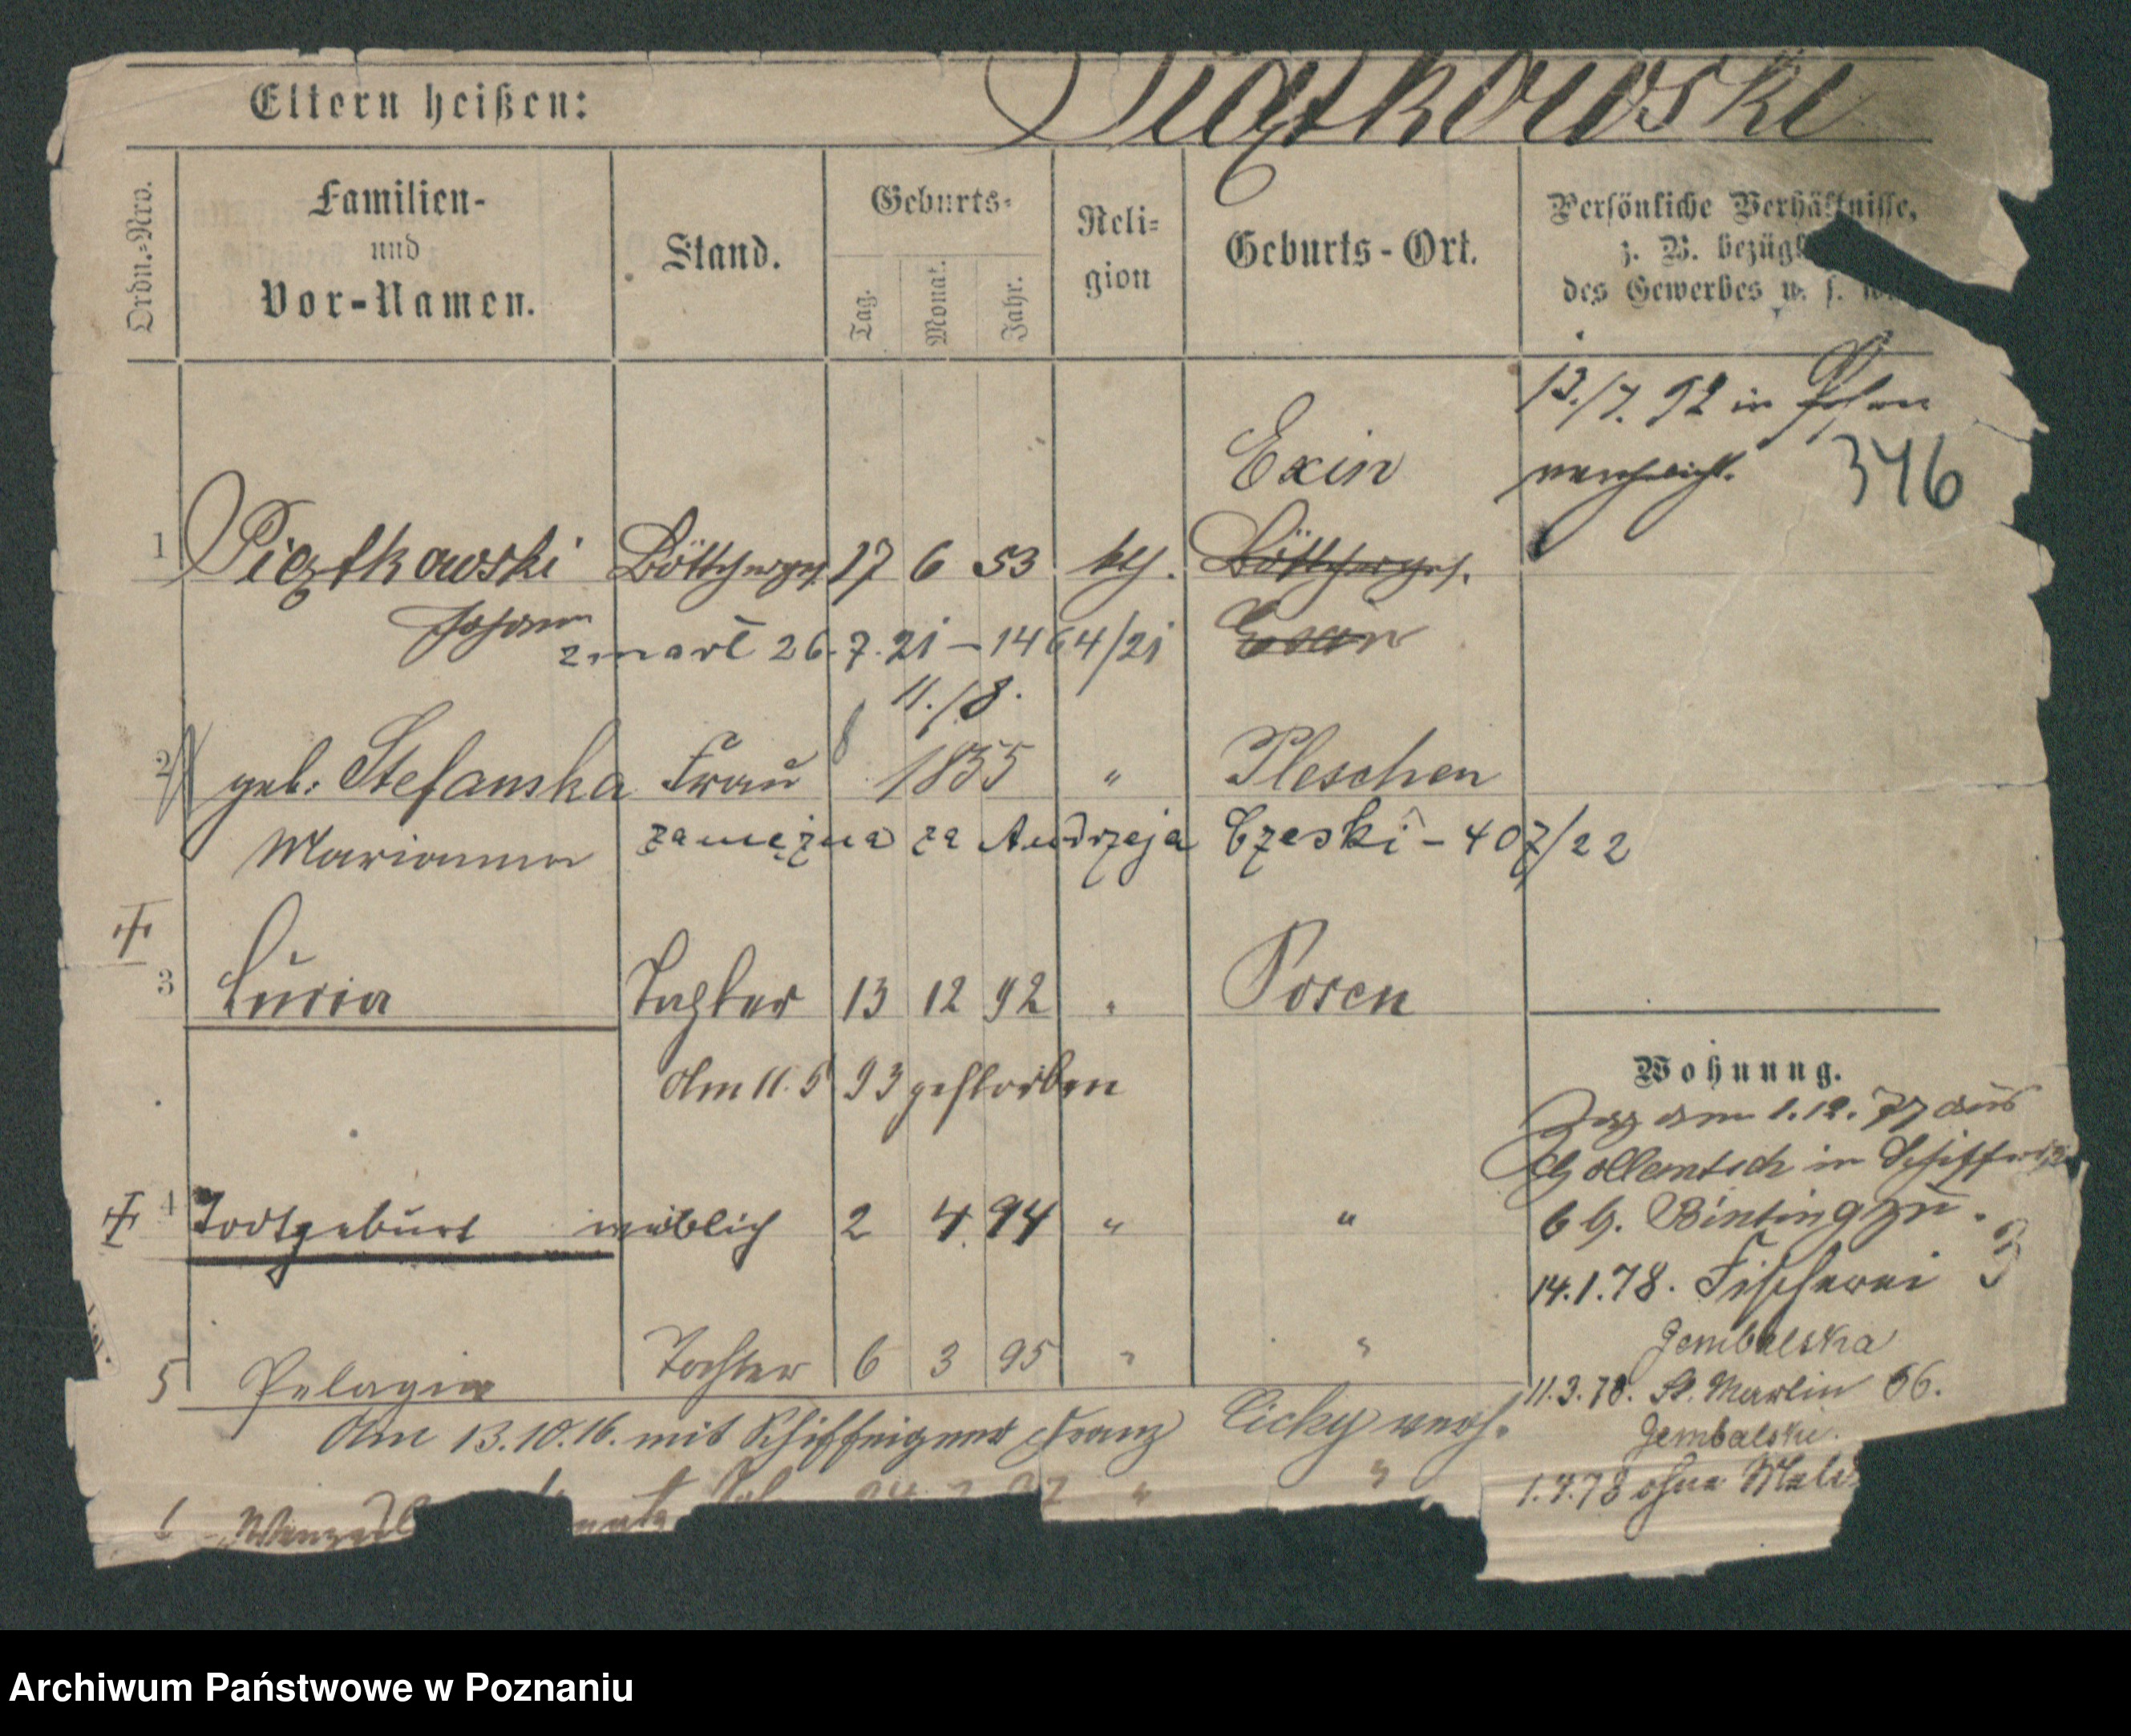 Eltern heißen: Piątkowski
Ordn.-Nro.
Familien-
und
Vor-Namen.
Stand.
Geburts-
Tag. Monat. Jahr.
Reli-
gion
Geburts-Ort.
Persönliche Verhältnisse,
z. B. bezügl
des Gewerbes u. s. w.
13./7. 92 in Posen
verehelicht. 346
Exin
1 Piątkowski Böttcherges. 17 6 53 kth. Böttcherges.
Johann Exin
zmarł 26.7.21 – 1464/21
11./8.
2 geb. Stefanska Frau 1855 " Pleschen
Marianna zamężna za Andrzeja Czeski – 407/22
3 Lucia Tochter 13 12 92 " Posen
Am 11. 5 93 gestorben
4 Todtgeburt weiblich 2 4. 94 " "
5 Pelagia Tochter 6 3 95 " "
Am 13.10.16. mit Schiffseigner Franz Cicky verh.
6 Wenzesl
Wohnung.
Zog am 1.12.77 aus
Gollantsch in Schifferstr
6 b. Binting zu.
14.1.78. Fischerei 3
Jembalska
11.3.78. St. Martin 66.
Jembalski.
1.7.78 ohne Meld
Archiwum Państwowe w Poznaniu